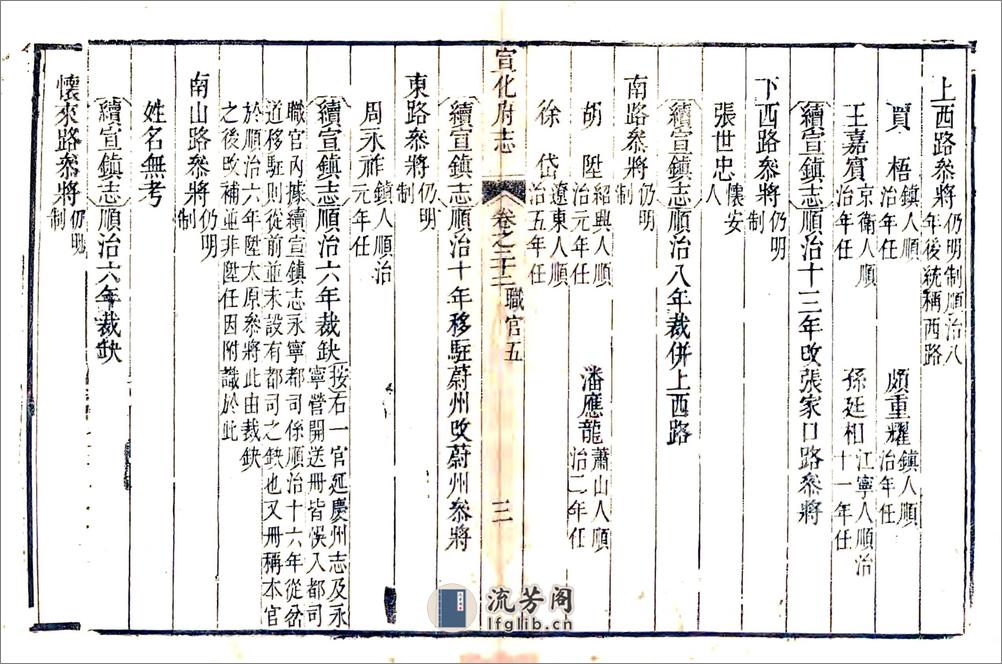 上西路參將仍明制順治八年後統稱西路
賈梧鎮人順治年任　頗重耀鎮人順治年任
王嘉賓京衛人順治年任　孫廷相江寧人順治十一年任
續宣鎮志順治十三年改張家口路參將
下西路參將仍明制
張世忠懷安人
續宣鎮志順治八年裁併上西路
南路參將仍明制
胡陞紹興人順治元年任　潘應龍蕭山人順治二年任
徐岱遼東人順治五年任
宣化府志　卷之二十二　職官五　三
續宣鎮志順治十年移駐蔚州改蔚州參將
東路參將仍明制
周永祚鎮人順治元年任
續宣鎮志順治六年裁缺按右一官延慶州志及永寧營開送冊皆悞入都司
職官內據續宣鎮志永寧都司係順治十六年從岔
道移駐則從前並未設有都司之缺也又冊稱本官
於順治六年陞太原參將此由裁缺
之後改補並非陞任因附識於此
南山路參將仍明制
姓名無考
續宣鎮志順治六年裁缺
懷來路參將仍明制
流芳阁
lfglib.cn